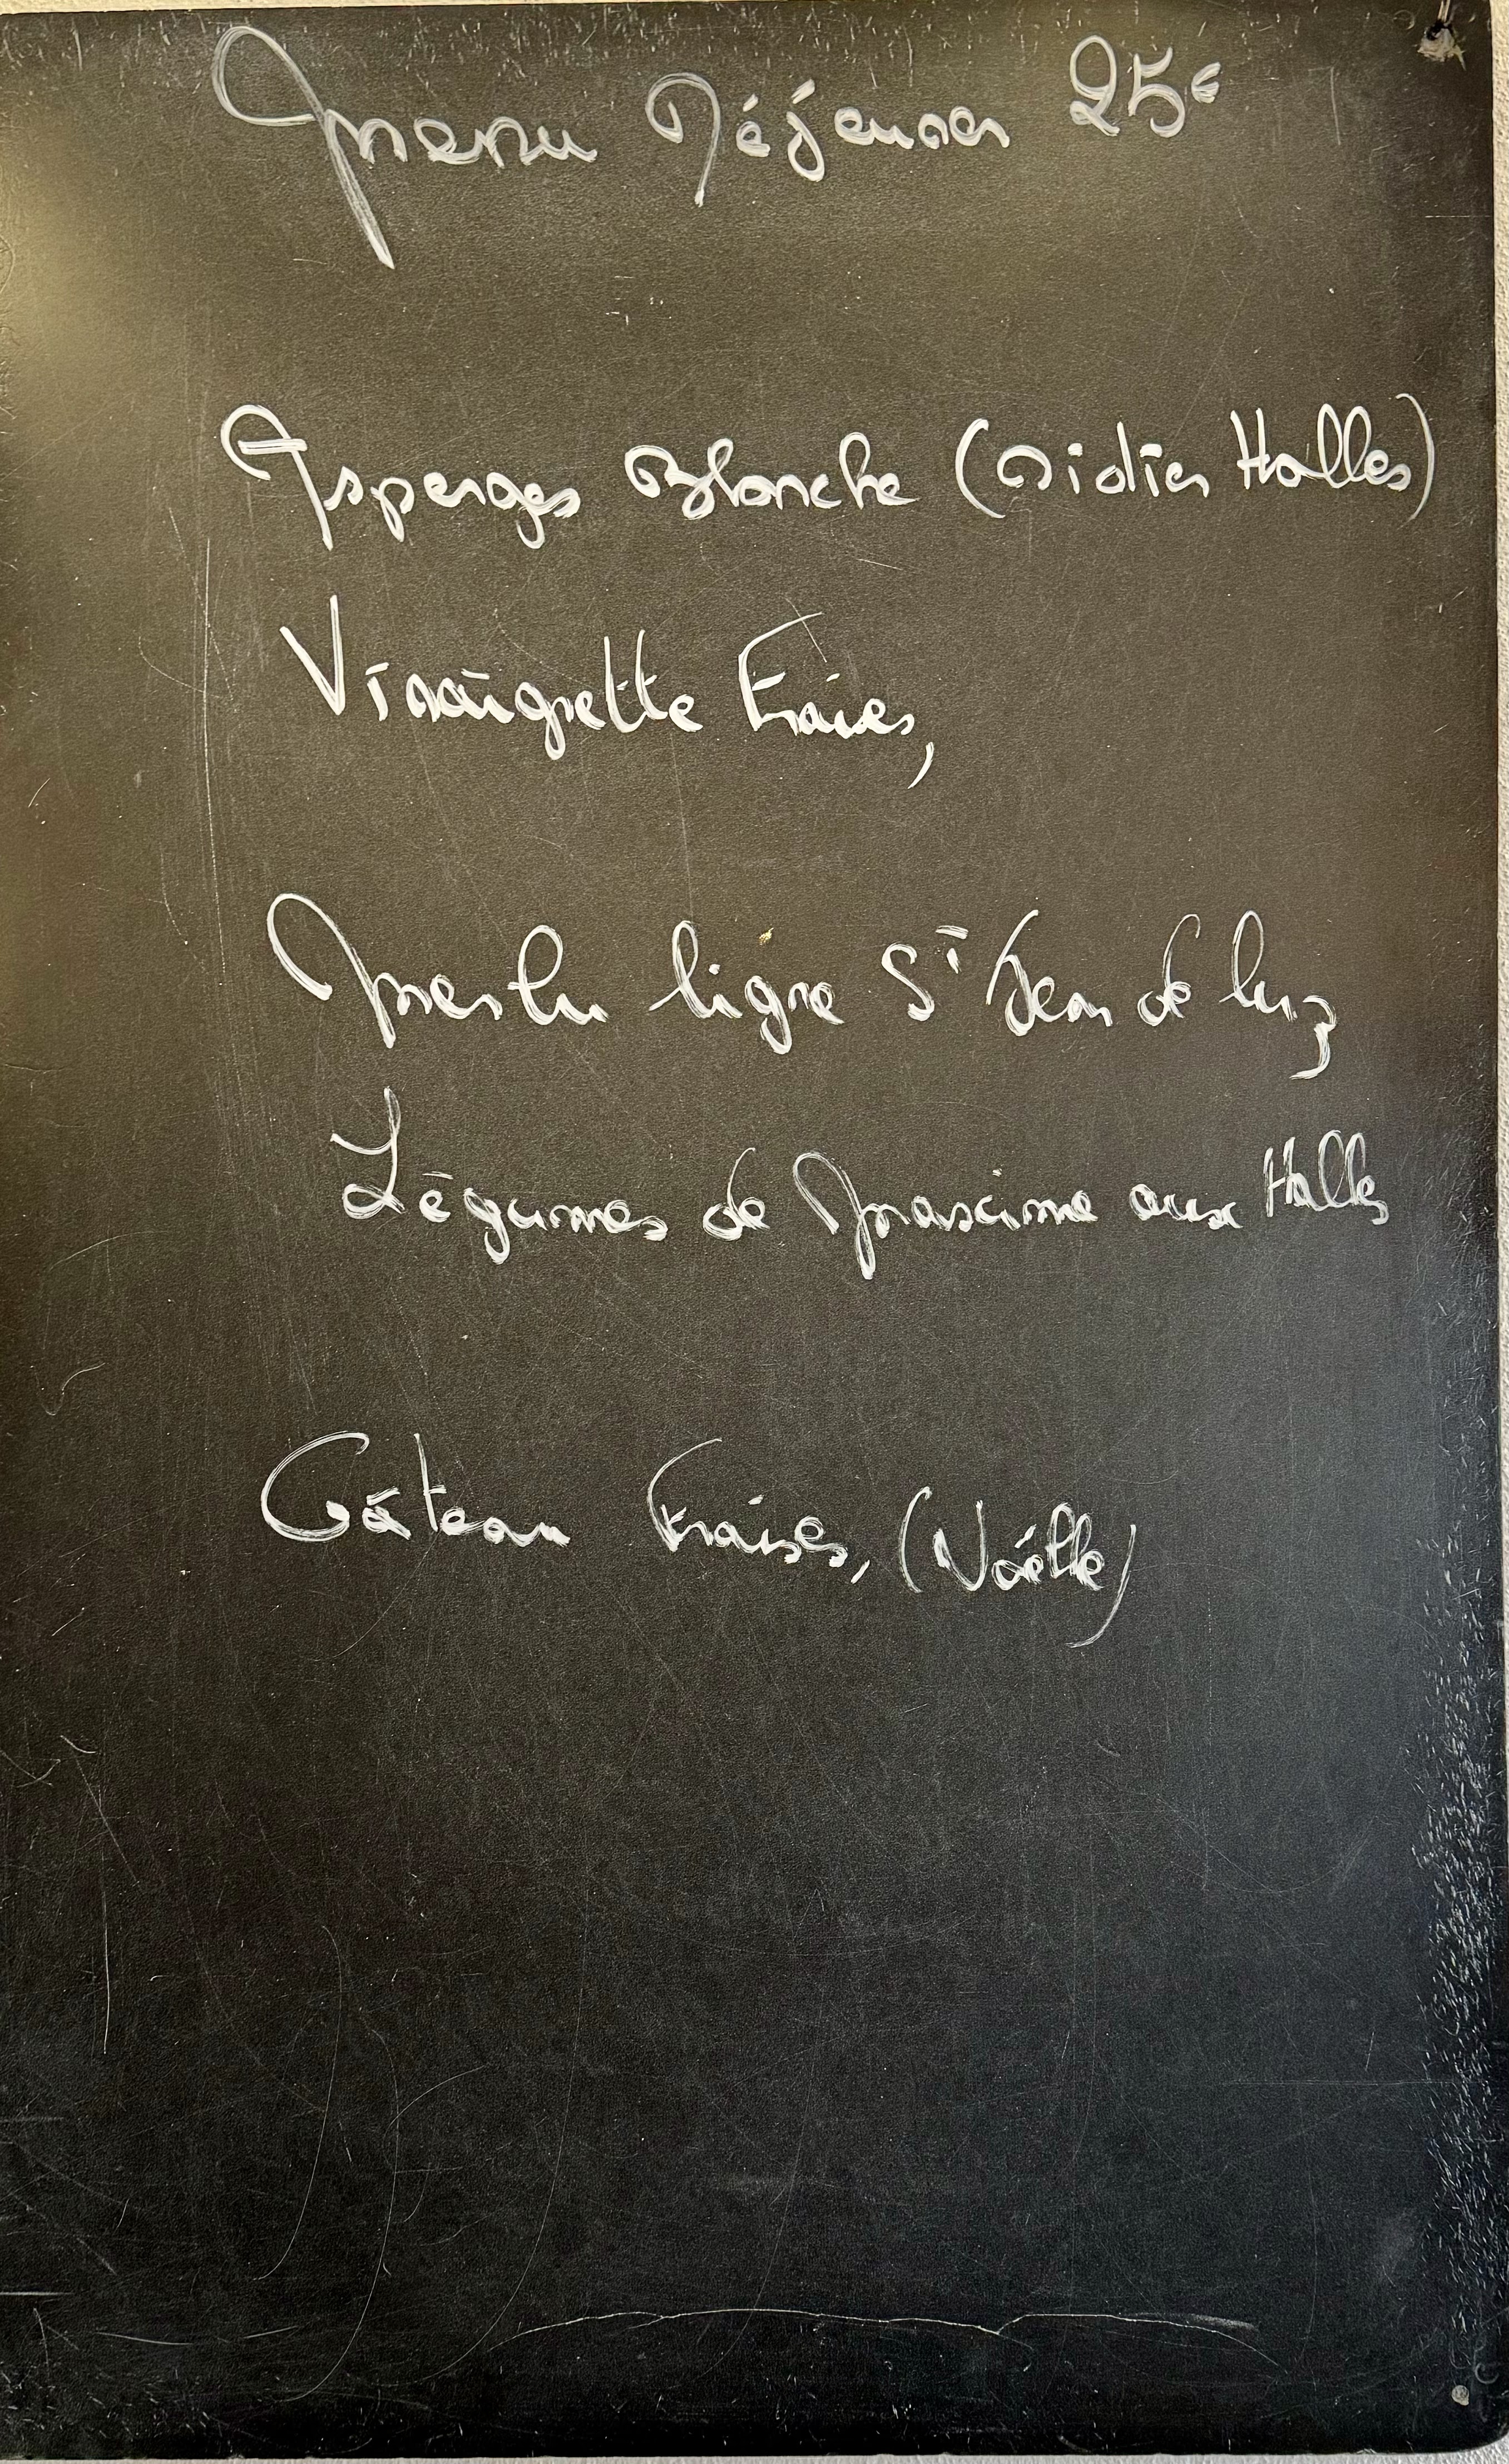 Menu Déjeuner 25€
Asperges Blanche (Didier Halles)
Vinaigrette Fraises,
Merlu ligne St Jean de luz
Légumes de Maxime aux Halles
Gâteau Fraises, (Noëlle)